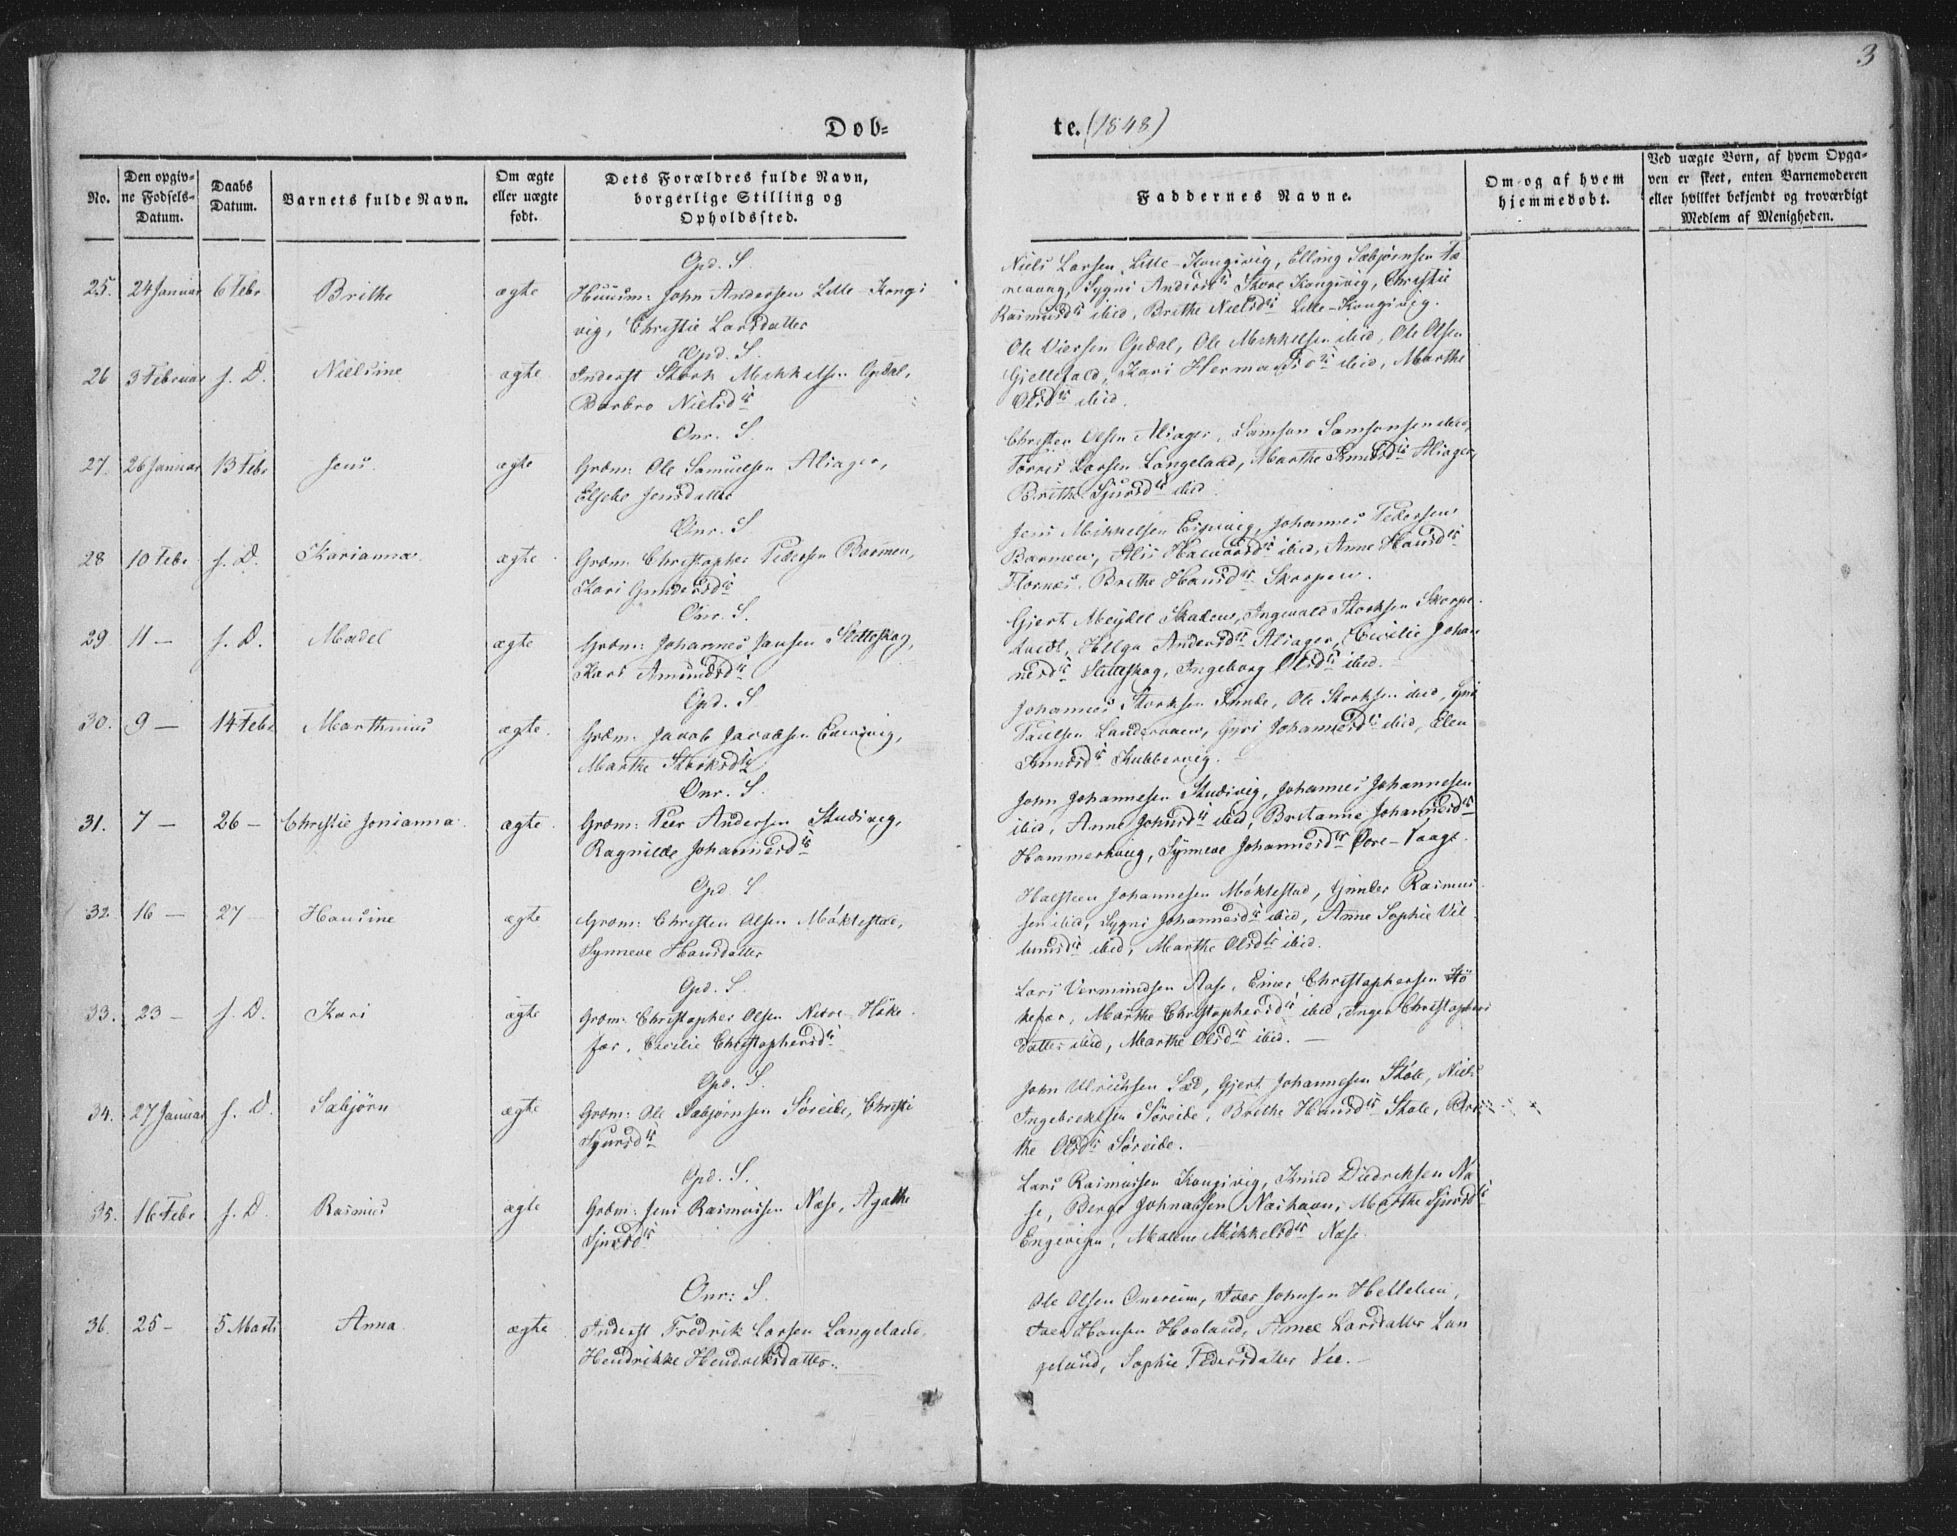 3
Døb-
te. (1848)
No.
Den opgiv-
ne Fødsels-
Datum.
Daabs
Datum.
Barnets fulde Navn.
Om ægte
eller uægte
født.
Dets Forældres fulde Navn,
borgerlige Stilling og
Opholdssted.
Faddernes Navne.
Om og af hvem
hjemmedøbt.
Ved uægte Børn, af hvem Opga-
ven er skeet, enten Barnemoderen
eller hvilket bekjendt og troværdigt
Medlem af Menigheden.
25. 24 Januar 6 Febr Brithe ægte
Opd. S.
Huusm: John Andersen Lille-Kongs
vig, Christie Larsdatter
Niels Larsen Lille-Kongsvig, Elling Sæbjørnsen
Sygni Andersdtr Store Kongsvig, Christie
Rasmusdtr ibid, Brithe Nielsdtr Lille-Kongsvig.
26 3 Februar s. D. Nielsine ægte
Opd. S.
Inderst Størk Mikkelsen Opdal,
Barbro Nielsdtr
Ole Viersen Opdal, Ole Mikkelsen ibid, Ole Olsen
Gjellefald, Kari Hermansdtr ibid, Marthe
Olsdtr ibid.
27. 26 Januar 13 Febr Jens. ægte
Onr. S.
Grdm: Ole Samuelsen Aliager,
Elsebe Jensdatter
Christen Olsen Aliager, Samson Samsonsen ibid,
Torris Larsen Langeland, Marthe Knudsdtr Aliager,
Brithe Sjursdtr ibid.
28 10 Febr s. D. Karianna ægte
Onr. S
Grdm: Christopher Pedersen Barmen,
Kari Gundersdtr
Jens Mikkelsen Espevig, Johannes Pedersen
Barmen, Alis Haavardsdtr ibid, Anne Hansdtr
Flornes, Brithe Hansdtr Skorpen.
29 11 — s. D. Madel ægte
Onr. S.
Grdm: Johannes Jansen Sletteskog,
Kari Amundsdtr
Gjert Meydel Skaden, Ingevald Størksen Skorpe
Helga Andersdtr Aliager, Cecilie Johan
nesdtr Sletteskog, Ingeborg Olsdtr ibid.
30. 9 — 14 Febr Marthinus ægte.
Opd. S
Grdm: Jacob Jacobsen Engevig,
Marthe Størksdtr
Johannes Størksen Ole Størksen ibid,
Paulsen Landervaag, Gyri Johannesdtr ibid, Elen
Knudsdtr Skubbevig.
31. 7 — 26 — Christie Jonianna ægte.
Onr. S.
Grdm: Peer Andersen Studevig,
Ragnilde Johannesdtr
John Johannesen Studevig, Johannes Johannesen
ibid, Anne Johnsdtr ibid, Britanne Johannesdtr
Hammerhoug, Synneve Johannesdtr Øvre-Vaage.
32. 16 — 27 Hansine ægte
Opd. S
Grdm: Christen Olsen Møklestad,
Synneve Hansdatter
Halsteen Johannesen Møklestad, Gunder Rasmus
sen ibid, Sygni Johannesdtr ibid, Anne Sophie Vil
lumsdtr ibid, Marthe Olsdtr ibid.
33. 23 — s. D. Kari ægte
Opd. S.
Grdm: Christopher Olsen Nedre Høke
far, Cecilie Christophersdtr
Lars Vermundsen Aase, Einar Christophersen Hø
kefar, Marthe Christophersdtr ibid, Inger Christophers
datter ibid, Marthe Olsdtr ibid. —
34. 27 Januar s. D. Sæbjørn ægte
Opd. S.
Grdm: Ole Sæbjørnsen Søreide, Christi
Sjursdtr
John Ulrichsen Sæd, Gjert Johannesen Støle, Niels
Ingebrektsen Søreide, Brithe Hansdtr Støle, Bri
the Olsdtr Søreide.
35. 16 Febr s. D. Rasmus ægte
Opd. S.
Grdm: Jens Rasmussen Næse, Agathe
Sjursdtr
Lars Rasmussen Kongsvig, Knud Didriksen Næ
se, Berge Johnassen Næshavn, Marthe Sjursdtr
Engevigen, Malene Mikkelsdtr Næse.
36. 25 — 5 Marts Anna ægte
Onr: S.
Inderst Fredrik Larsen Langeland,
Hendrikke Hendriksdatter.
Ole Olsen Onereim, Iver Johnsen Helleland,
Iver Hansen Hovland, Anne Larsdatter Lan
geland, Sophie Pedersdatter Vee. —